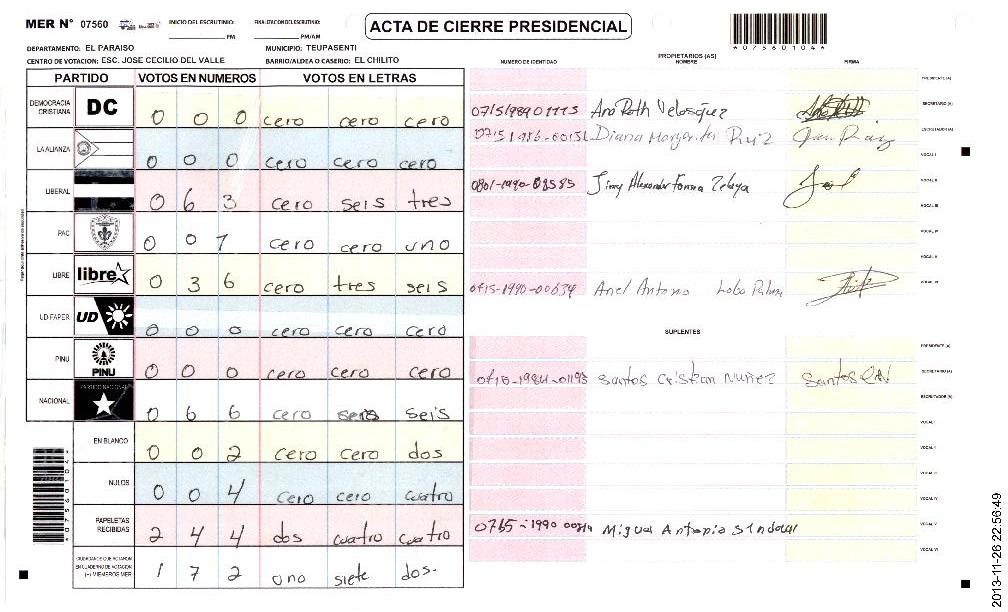 MER N° 07560 INICIO DEL ESCRUTINIO: FINALIZACION DEL ESCRUTINIO: ACTA DE CIERRE PRESIDENCIAL
PM PM/AM
4075601044
DEPARTAMENTO: EL PARAISO MUNICIPIO: TEUPASENTI
CENTRO DE VOTACION: ESC. JOSE CECILIO DEL VALLE BARRIO/ALDEA O CASERIO: EL CHILITO
PROPIETARIOS (AS)
NUMERO DE IDENTIDAD NOMBRE FIRMA
PARTIDO VOTOS EN NUMEROS VOTOS EN LETRAS
DEMOCRACIA CRISTIANA DC 0 0 0 cero cero cero
LA ALIANZA 0 0 0 cero cero cero
LIBERAL 0 6 3 cero seis tres
PAC 0 0 1 cero cero uno
LIBRE libre 0 3 6 cero tres seis
UD FAPER UD 0 0 0 cero cero cero
PINU PINU 0 0 0 cero cero cero
NACIONAL PARTIDO NACIONAL 0 6 6 cero seis seis
EN BLANCO 0 0 2 cero cero dos
NULOS 0 0 4 cero cero cuatro
PAPELETAS RECIBIDAS 2 4 4 dos cuatro cuatro
CIUDADANOS QUE VOTARON EN CUADERNO DE VOTACION (+) MIEMBROS MER 1 7 2 uno siete dos.
4075601044
PRESIDENTE (A)
Ana Ruth Velasquez SECRETARIO (A)
Diana Margarita Ruiz ESCRUTADOR (A)
VOCAL I
0801-1990-08585 Jimy Alexander Zelaya VOCAL II
VOCAL III
VOCAL IV
VOCAL V
Ariel Antonio Lobo VOCAL VI
SUPLENTES
PRESIDENTE (A)
0715-1984-01193 Santos Cristian Nuñez Santos SECRETARIO (A)
ESCRUTADOR (A)
VOCAL I
VOCAL II
VOCAL III
VOCAL IV
Antonio VOCAL V
VOCAL VI
2013-11-26 22:56:49